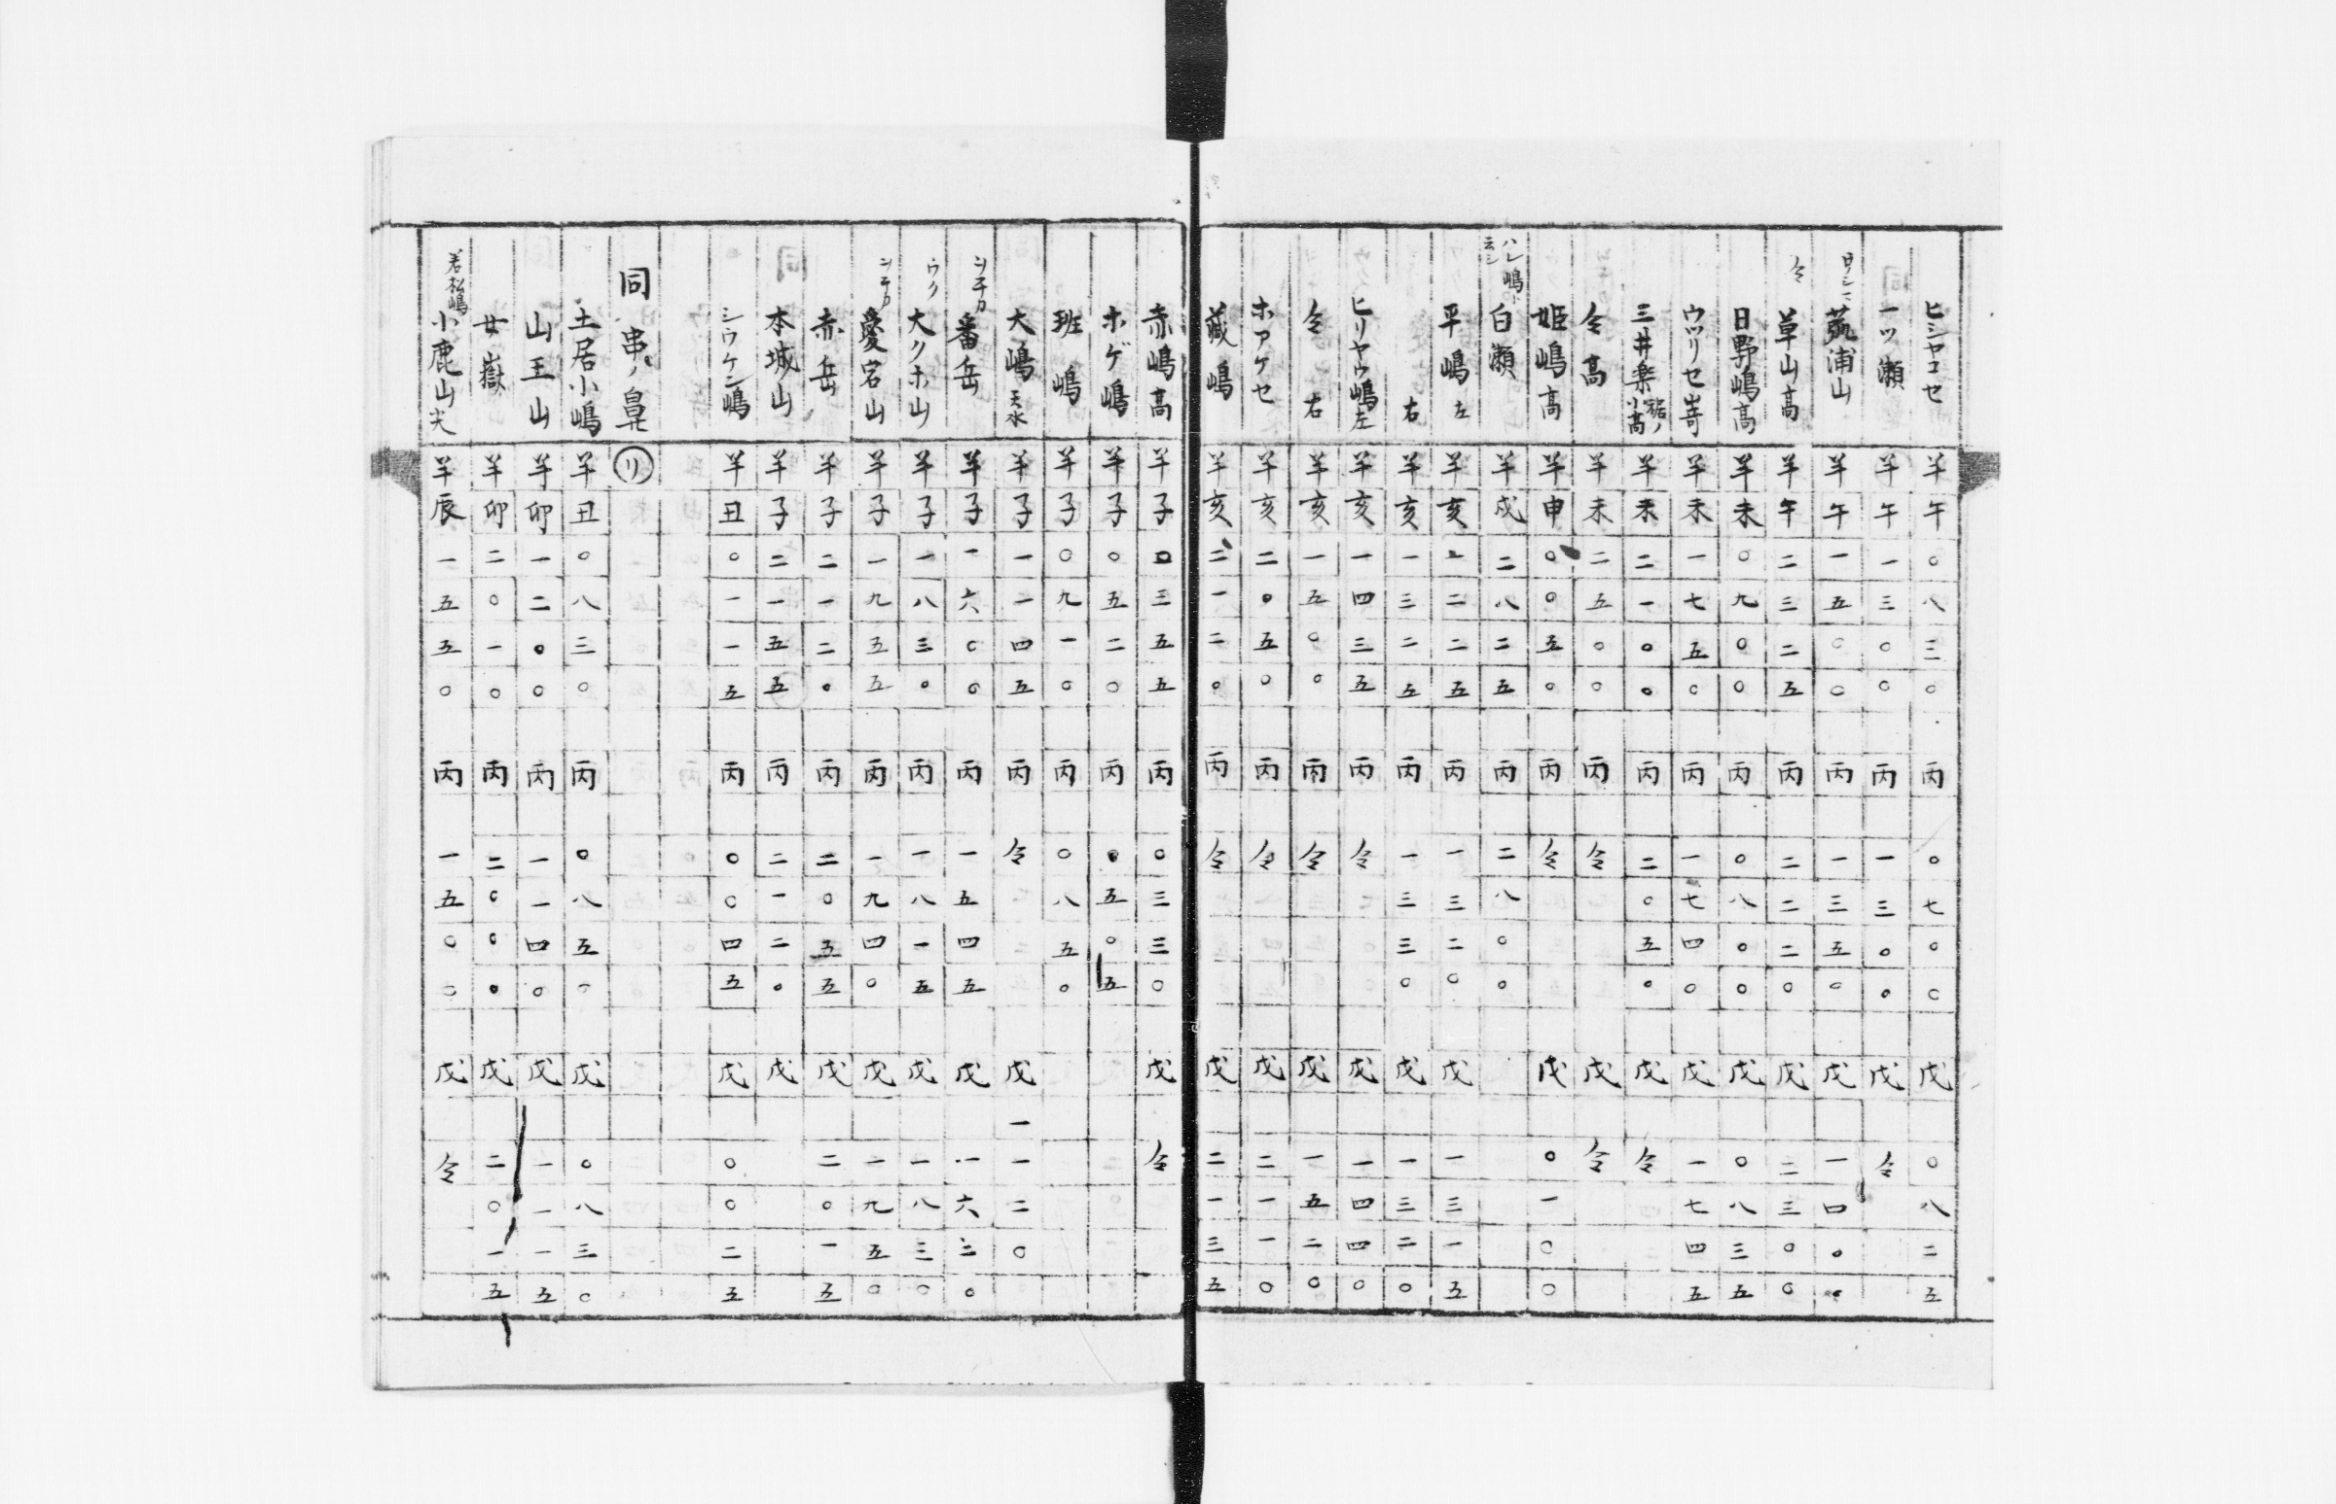 ヒシヤコセ 羊午〇八三〇 丙〇七〇〇 戊〇八二五
一ツ瀬 羊午一三〇〇 丙一三〇〇 戊仝
日ノシマ 菰浦山 羊午一五〇〇 丙一三五〇 戊一四〇〇
仝 草山高 羊午二三二五 丙二二二〇 戊二三〇〇
日野嶋高 羊未〇九〇〇 丙〇八〇〇 戊〇八三五
ウツリセ嵜 羊未一七五〇 丙一七四〇 戊一七四五
三井楽裾ノ小高 羊未二一〇〇 丙二〇五〇 戊仝
仝高 羊未二五〇〇 丙仝 戊仝
姫嶋高 羊申〇〇五〇 丙仝 戊〇一〇〇
ハレ嶋ト云シ 白瀬 羊戌二八二五 丙二八〇〇
平嶋左 羊亥一二二五 丙一三二〇 戊一三一五
右 羊亥一三二五 丙一三三〇 戊一三二〇
ヒリヤウ嶋左 羊亥一四三五 丙仝 戊一四四〇
仝右 羊亥一五〇〇 丙仝 戊一五二〇
ホアケセ 羊亥二〇五〇 丙仝 戊二一一〇
蔵嶋 羊亥二一二〇 丙仝 戊二一三五
赤嶋高 羊子〇三五五 丙〇三三〇 戊仝
ホゲ嶋 羊子〇五二〇 丙〇五〇五
班嶋 羊子〇九一〇 丙〇八五〇
大嶋天水 羊子一一四五 丙仝 戊一一二〇
ヲチカ 番岳 羊子一六〇〇 丙一五四五 戊一六三〇
ウク 大クホ山 羊子一八三〇 丙一八一五 戊一八三〇
ヲチカ 愛宕山 羊子一九五五 丙一九四〇 戊一九五〇
赤岳 羊子二一二〇 丙二〇五五 戊二〇一五
本城山 羊子二一五五 丙二一二〇 戊
シウケン嶋 羊丑〇一一五 丙〇〇四五 戊〇〇二五
同 串ノ鼻 リ
土居小嶋 羊丑〇八三〇 丙〇八五〇 戊〇八三〇
山王山 羊卯一二〇〇 丙一一四〇 戊一一一五
女嶽 羊卯二〇一〇 丙二〇〇〇 戊二〇一五
若松嶋 小鹿山尖 羊辰一五五〇 丙一五〇〇 戊仝